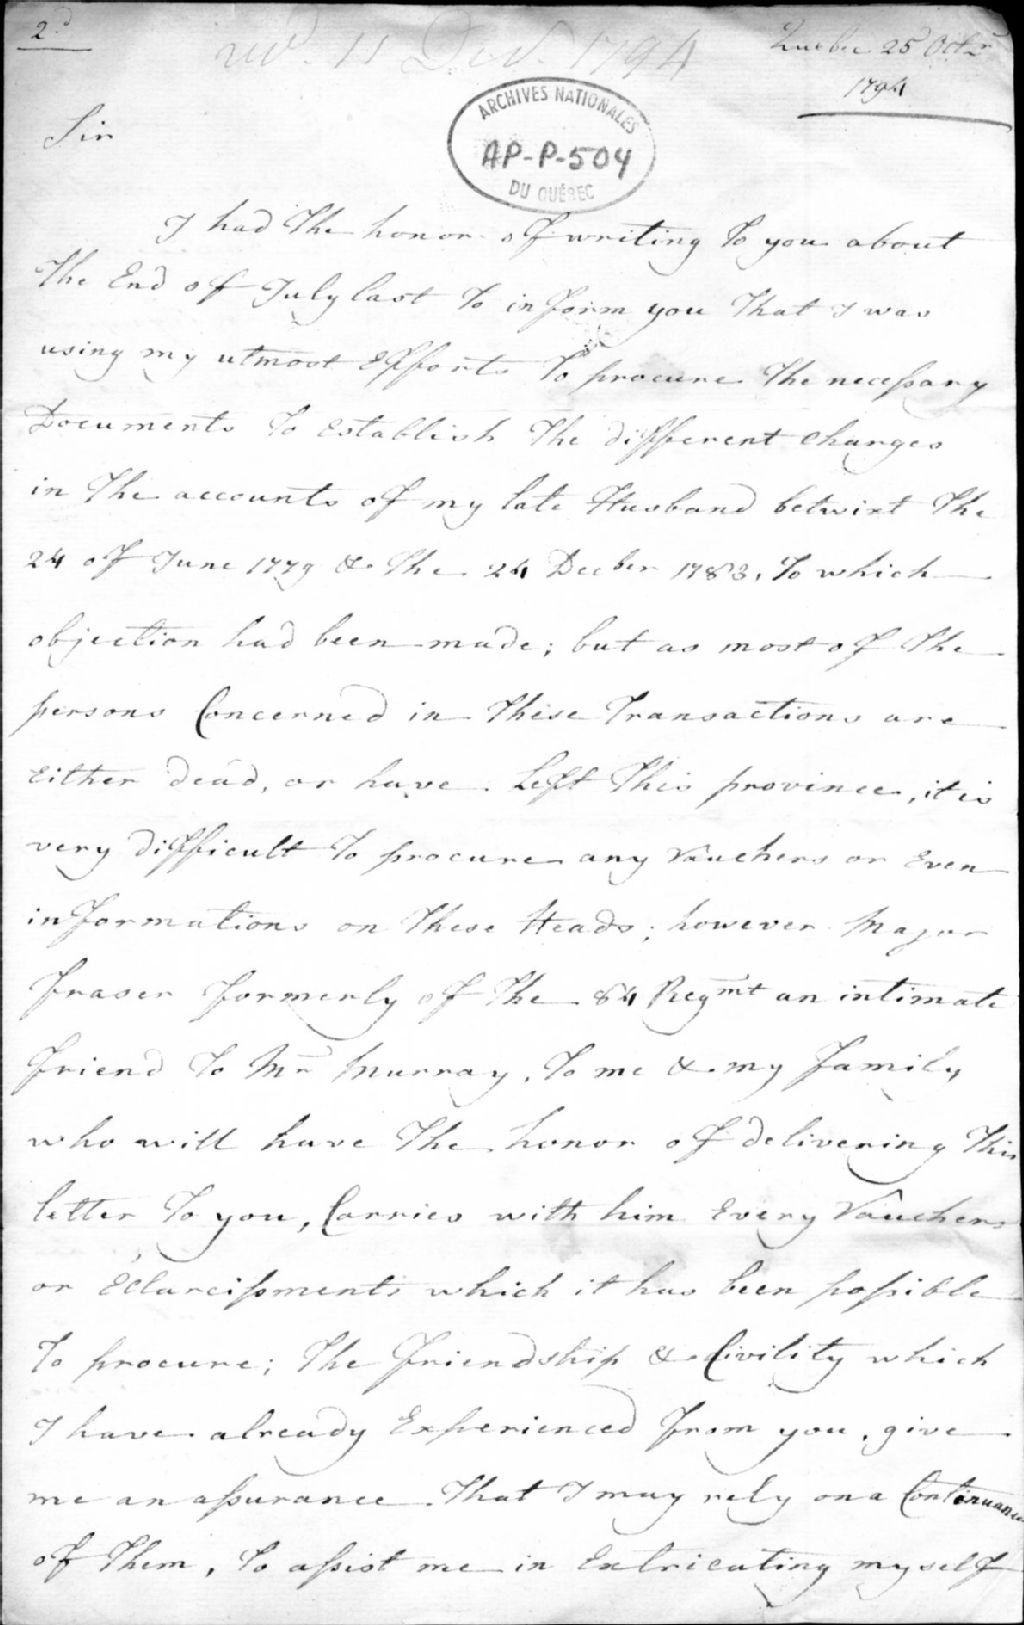 2d
recd. 11 Decr. 1794
Quebec 25 Octr
1794
ARCHIVES NATIONALES
AP-P-504
DU QUÉBEC
Sir
I had The honor of writing To you about
The End of July last To inform you That I was
using my utmost Efforts To procure The necessary
Documents To Establish The different Charges
in The accounts of my late Husband betwixt The
24 of June 1779 & The 24 Decber 1783, To which
objection had been made; but as most of The
persons Concerned in These Transactions are
Either dead, or have Left This province, it is
very difficult To procure any Vauchers or Even
informations on These Heads; however Major
Fraser formerly of The 84 Regmt an intimate
friend To Mr Murray, To me & my family
who will have The honor of delivering This
letter To you, Carries with him Every Vauchers
or Éclarcissments which it has been possible
To procure; The friendship & Civility which
I have already Experienced from you, give
me an assurance That I may rely on a Continuance
of Them, To assist me in Extricating myself